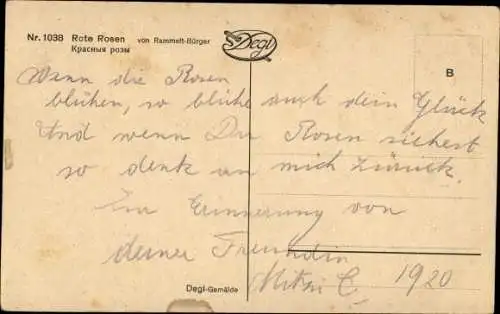 Nr. 1038 Rote Rosen von Rammelt-Bürger
Красныя розы
Degi
B
Wenn die Rosen
blühen, so blühe auch dein Glück
Und wenn Du Rosen siehest
so denk an mich zurück.
Zur Erinnerung von
deiner Freundin
C. 1920
Degi-Gemälde